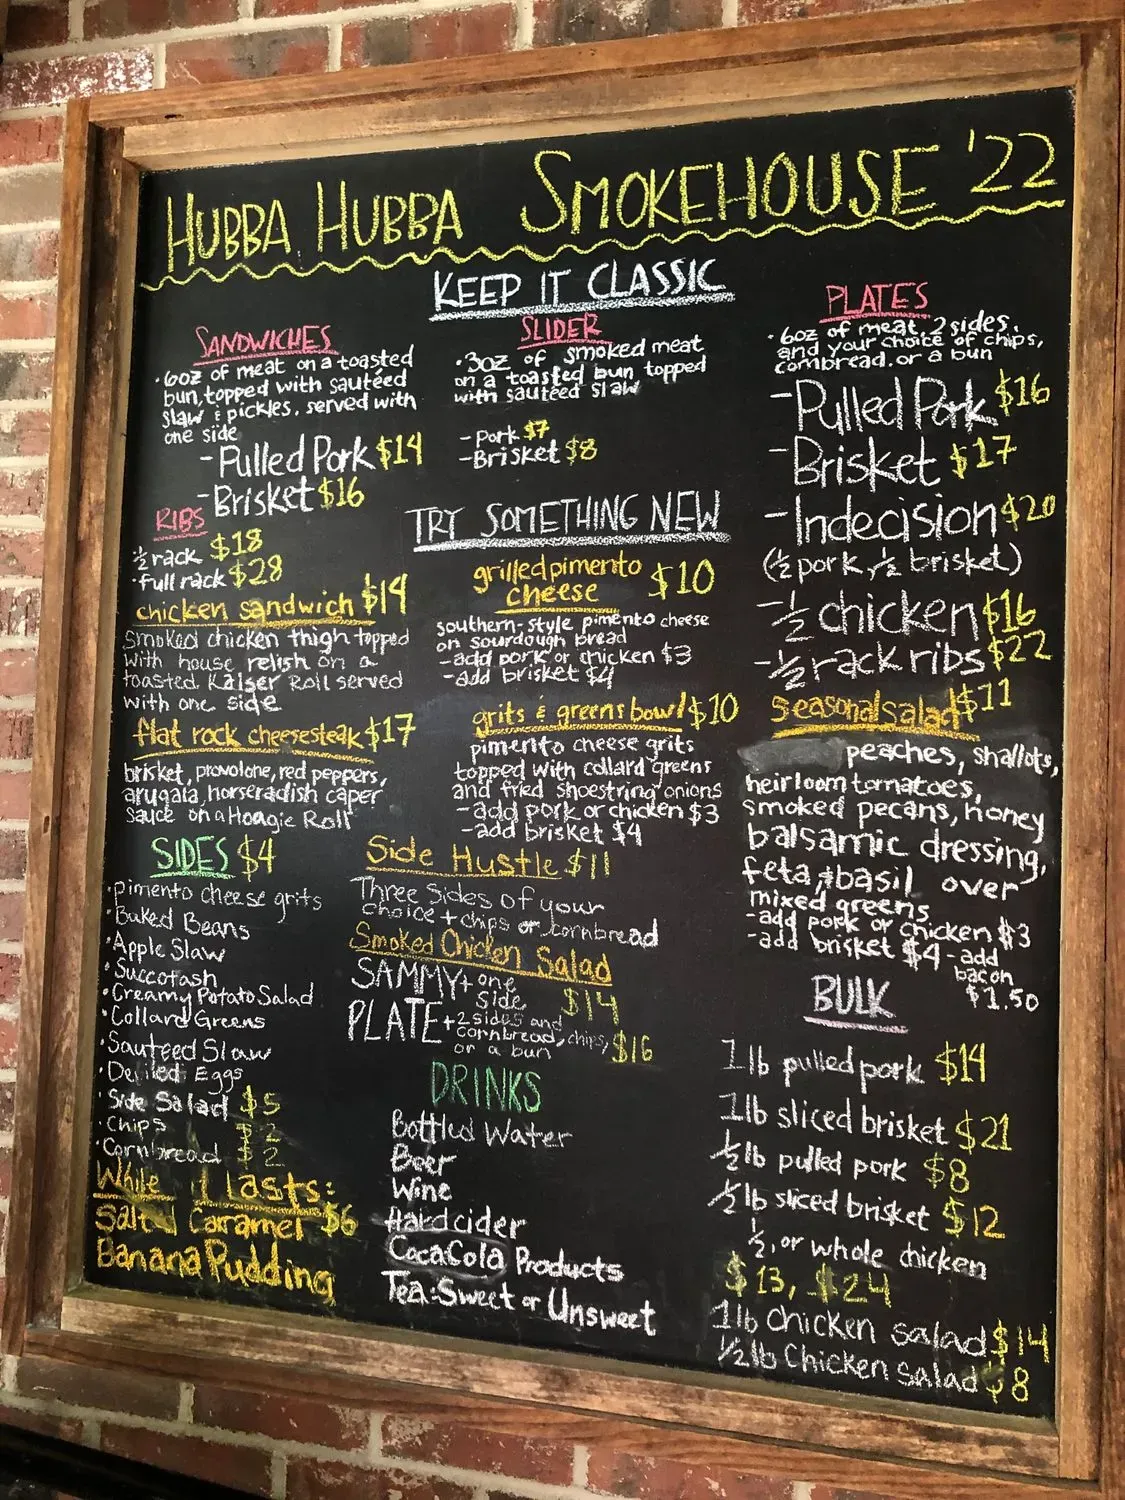 HUBBA HUBBA SMOKEHOUSE '22
KEEP IT CLASSIC
SANDWICHES
·6oz of meat on a toasted
bun, topped with sautéed
slaw & pickles. served with
one side
-Pulled Pork $14
-Brisket $16
SLIDER
·3oz of smoked meat
on a toasted bun topped
with sautéed slaw
-Pork $7
-Brisket $8
PLATES
·6oz of meat, 2 sides,
and your choice of chips,
cornbread, or a bun
-Pulled Pork $16
-Brisket $17
-Indecision $20
(½ pork, ½ brisket)
-½ chicken $16
-½ rack ribs $22
RIBS
½ rack $18
·full rack $28
TRY SOMETHING NEW
chicken sandwich $14
smoked chicken thigh topped
with house relish on a
toasted Kaiser Roll served
with one side
flat rock cheesesteak $17
brisket, provolone, red peppers,
arugala, horseradish caper
sauce on a Hoagie Roll
grilled pimento
cheese $10
southern-style pimento cheese
on sourdough bread
-add pork or chicken $3
-add brisket $4
grits & greens bowl $10
pimento cheese grits
topped with collard greens
and fried shoestring onions
-add pork or chicken $3
-add brisket $4
seasonal salad $11
peaches, shallots,
heirloom tomatoes,
smoked pecans, honey
balsamic dressing,
feta, & basil over
mixed greens
-add pork or chicken $3
-add brisket $4 -add
bacon
$1.50
SIDES $4
·pimento cheese grits
·Baked Beans
·Apple Slaw
·Succotash
·Creamy Potato Salad
·Collard Greens
·Sauteed Slaw
·Deviled Eggs
·Side Salad $5
·Chips $2
·Cornbread $2
While it lasts:
Salted Caramel $6
Banana Pudding
Side Hustle $11
Three Sides of your
choice + chips or cornbread
Smoked Chicken Salad
SAMMY + one
side $14
PLATE + 2 sides and
cornbread, chips,
or a bun $16
DRINKS
Bottled Water
Beer
Wine
Hard cider
CocaCola Products
Tea: Sweet or Unsweet
BULK
1 lb pulled pork $14
1 lb sliced brisket $21
½ lb pulled pork $8
½ lb sliced brisket $12
½, or whole chicken
$13, $24
1 lb Chicken salad $14
½ lb Chicken salad $8